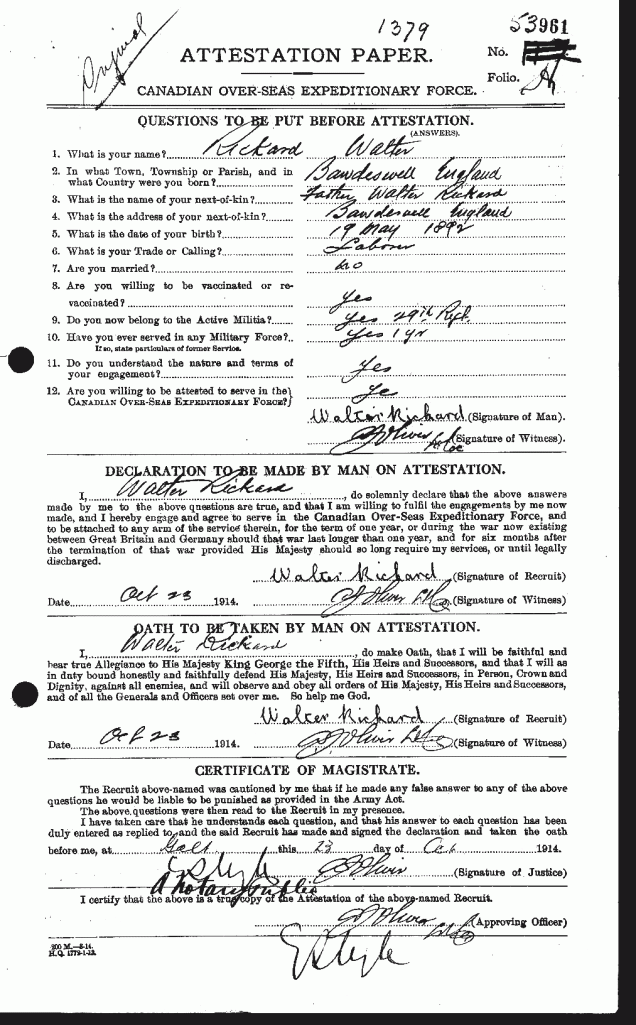 1379
53961
Original
ATTESTATION PAPER.
No.
Folio.
CANADIAN OVER-SEAS EXPEDITIONARY FORCE.
QUESTIONS TO BE PUT BEFORE ATTESTATION.
(ANSWERS).
1. What is your name? Rickard Walter
2. In what Town, Township or Parish, and in what Country were you born? Bawdeswell England
3. What is the name of your next-of-kin? Father Walter Rickard
4. What is the address of your next-of-kin? Bawdeswell England
5. What is the date of your birth? 19 May 1892
6. What is your Trade or Calling? Labourer
7. Are you married? No
8. Are you willing to be vaccinated or re-
vaccinated? Yes
9. Do you now belong to the Active Militia? Yes 29th Regt.
10. Have you ever served in any Military Force?.. Yes 1 yr
If so, state particulars of former Service.
11. Do you understand the nature and terms of
your engagement? Yes
12. Are you willing to be attested to serve in the
CANADIAN OVER-SEAS EXPEDITIONARY FORCE? Yes
Walter Rickard (Signature of Man).
(Signature of Witness).
DECLARATION TO BE MADE BY MAN ON ATTESTATION.
I, Walter Rickard, do solemnly declare that the above answers
made by me to the above questions are true, and that I am willing to fulfil the engagements by me now
made, and I hereby engage and agree to serve in the Canadian Over-Seas Expeditionary Force, and
to be attached to any arm of the service therein, for the term of one year, or during the war now existing
between Great Britain and Germany should that war last longer than one year, and for six months after
the termination of that war provided His Majesty should so long require my services, or until legally
discharged.
Walter Rickard (Signature of Recruit)
Date Oct 23 1914. (Signature of Witness)
OATH TO BE TAKEN BY MAN ON ATTESTATION.
I, Walter Rickard, do make Oath, that I will be faithful and
bear true Allegiance to His Majesty King George the Fifth, His Heirs and Successors, and that I will as
in duty bound honestly and faithfully defend His Majesty, His Heirs and Successors, in Person, Crown and
Dignity, against all enemies, and will observe and obey all orders of His Majesty, His Heirs and Successors,
and of all the Generals and Officers set over me. So help me God.
Walter Rickard (Signature of Recruit)
Date Oct 23 1914. (Signature of Witness)
CERTIFICATE OF MAGISTRATE.
The Recruit above-named was cautioned by me that if he made any false answer to any of the above
questions he would be liable to be punished as provided in the Army Act.
The above questions were then read to the Recruit in my presence.
I have taken care that he understands each question, and that his answer to each question has been
duly entered as replied to, and the said Recruit has made and signed the declaration and taken the oath
before me, at Galt this 23 day of Oct 1914.
(Signature of Justice)
A Notary Public
I certify that the above is a true copy of the Attestation of the above-named Recruit.
(Approving Officer)
200 M.—8-14.
H.Q. 1772-1-13.